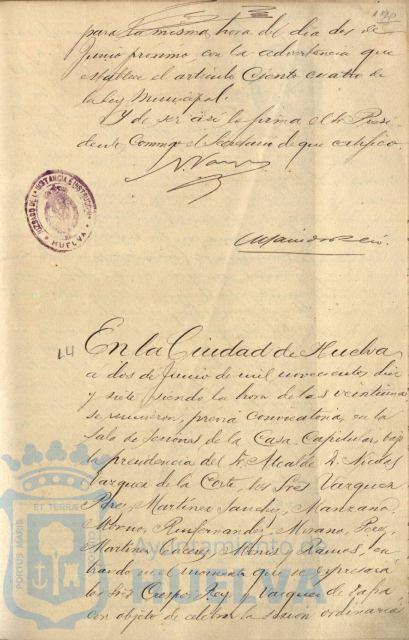 para la misma hora del dia dos de
Junio proximo, con la advertencia que
establece el artículo Ciento cuatro de
la ley Municipal.
Y de ser así lo firma el Sr. Presi-
dente, Conmigo el Secretario de que certifico.
JUZGADO DE 1ª INSTANCIA E INSTRUCCION
HUELVA
14 En la Ciudad de Huelva
a dos de Junio de mil novecientos diez
y siete siendo la hora de las veintiuna
se reunieron, previa Convocatoria, en la
Sala de Sesiones de la Casa Capitular, bajo
la presidencia del Sr. Alcalde D. Nicolas
Vazquez de la Corte, los Sres Vazquez
Perez, Martinez Sanchez, Manzano,
Moreno, Moreno, Perez,
Martin, Ramos, en
trando en el momento que se expresará
los Sres Crespo Rey y Vazquez de Zafra
con objeto de celebrar la sesion ordinaria
PORTUS MARIS ET TERRAE
Ayuntamiento de
HUELVA